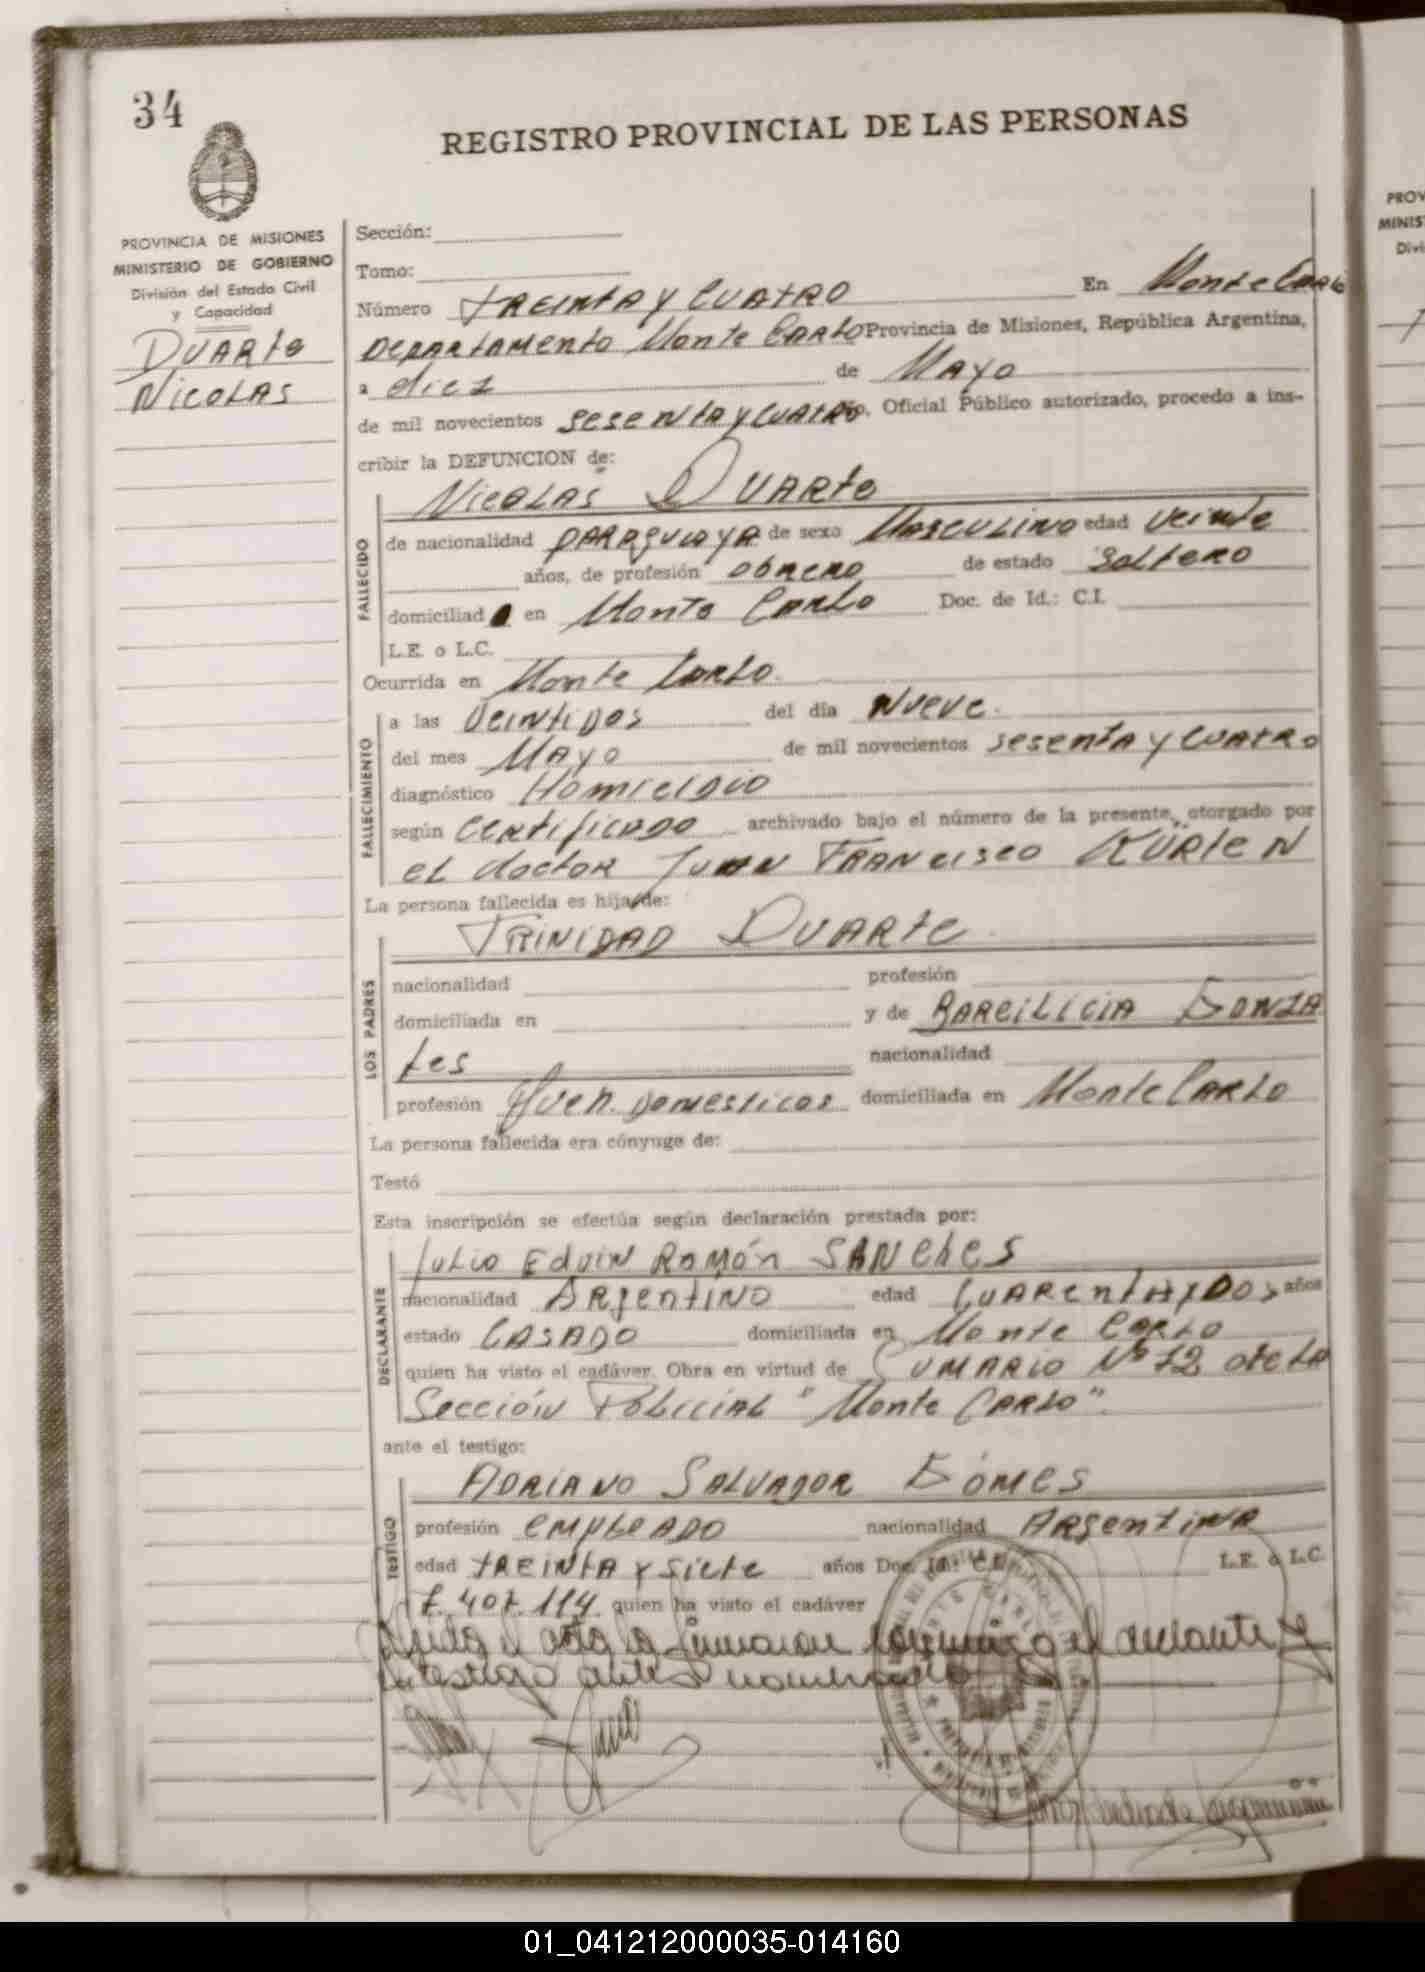 34
REGISTRO PROVINCIAL DE LAS PERSONAS
PROVINCIA DE MISIONES
MINISTERIO DE GOBIERNO
División del Estado Civil
y Capacidad
Duarte
Nicolas
Sección:
Tomo:
Número treinta y cuatro En Monte Carlo
Departamento Monte Carlo Provincia de Misiones, República Argentina,
a diez de Mayo
de mil novecientos sesenta y cuatro, Oficial Público autorizado, procedo a ins-
cribir la DEFUNCION de:
Nicolas Duarte
FALLECIDO
de nacionalidad paraguaya de sexo Masculino edad veinte
años, de profesión obrero de estado soltero
domiciliado en Monte Carlo Doc. de Id.: C.I.
L.E. o L.C.
Ocurrida en Monte Carlo.
FALLECIMIENTO
a las veintidos del día nueve.
del mes Mayo de mil novecientos sesenta y cuatro
diagnóstico Homicidio
según certificado archivado bajo el número de la presente, otorgado por
el doctor Juan Francisco Kürten
La persona fallecida es hija/de:
Trinidad Duarte
LOS PADRES
nacionalidad profesión
domiciliada en y de Barcilicia Gonza
les nacionalidad
profesión Queh. Domesticos domiciliada en Monte Carlo
La persona fallecida era cónyuge de:
Testó
Esta inscripción se efectúa según declaración prestada por:
Julio Edvin Ramón Sanches
DECLARANTE
nacionalidad Argentino edad cuarenta y dos años
estado casado domiciliada en Monte Carlo
quien ha visto el cadáver. Obra en virtud de Sumario Nº 72 de la
Sección Policial "Monte Carlo".
ante el testigo:
Adriano Salvador Gómes
TESTIGO
profesión empleado nacionalidad Argentina
edad treinta y siete años Doc. Id.: C.I. L.E. o L.C.
7.407.114 quien ha visto el cadáver
Leída el acta la firmaron conmigo el declarante y
el testigo antes nombrado
PROV
MINIS
Divi
01_041212000035-014160